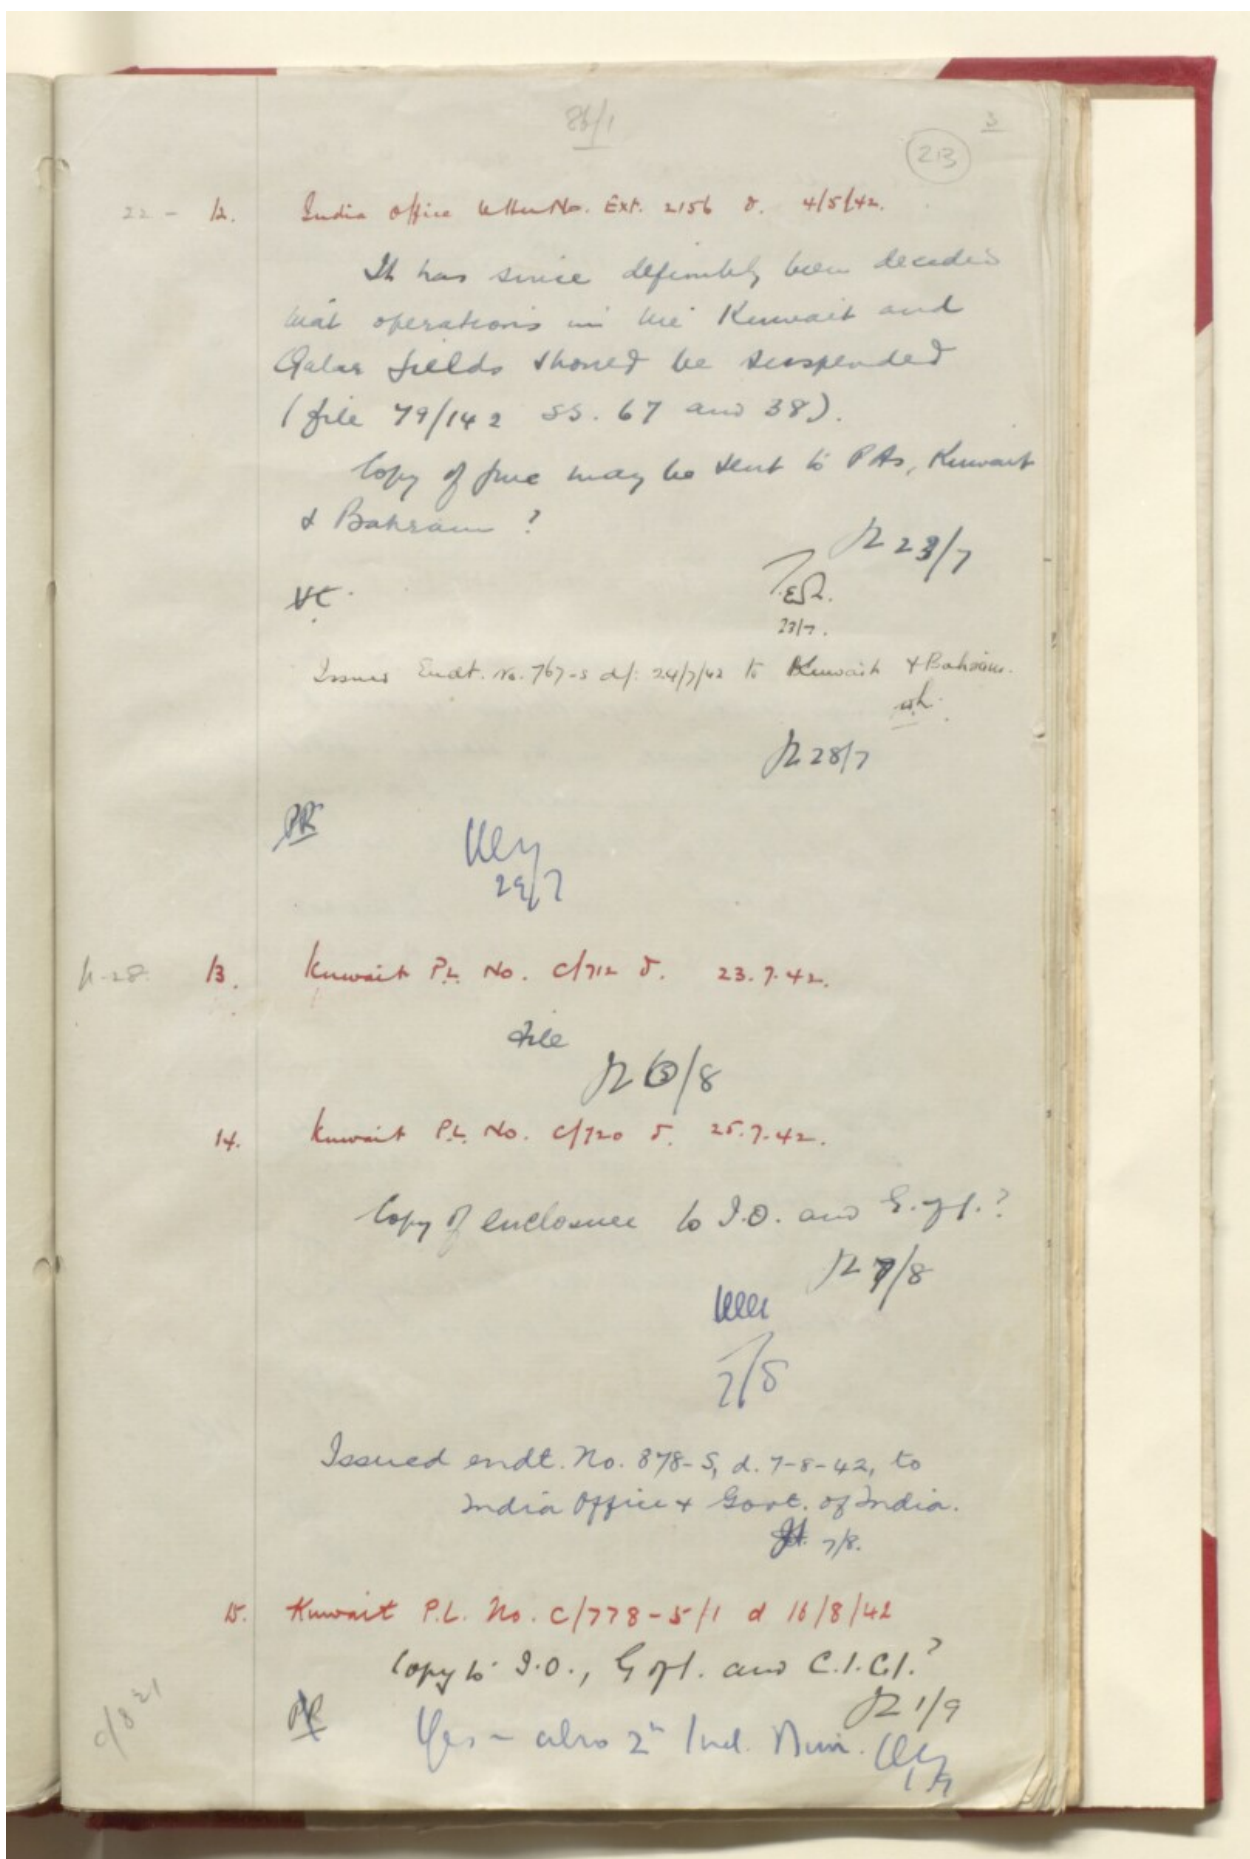 86/1
3
213
22 - 12. India Office letter No. Ext. 2156 d. 4/5/42.
It has since definitely been decided
that operations in the Kuwait and
Qatar fields should be suspended
(file 79/142 SS. 67 and 38).
Copy of may be sent to PAs, Kuwait
& Bahrain ?
23/7
23/7.
Issued Endt. No. 767-S d/: 24/7/42 to Kuwait & Bahrain.
28/7
PR
29/7
28. 13. Kuwait P.L. No. C/712 d. 23.7.42.
File
6/8
14. Kuwait P.L. No. C/720 d. 25.7.42.
Copy of enclosure to I.O. and G. of I.?
7/8
7/8
Issued endt. No. 878-S, d. 7-8-42, to
India Office & Govt. of India.
7/8.
15. Kuwait P.L. No. C/778-5/1 d 16/8/42
Copy to I.O., G of I. and C.I.C.I.?
1/9
PR Yes - also 2" Ind. Divn.
1/9